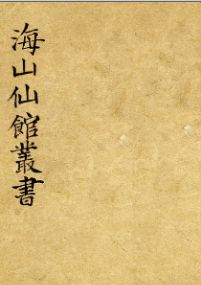 海山仙館叢書